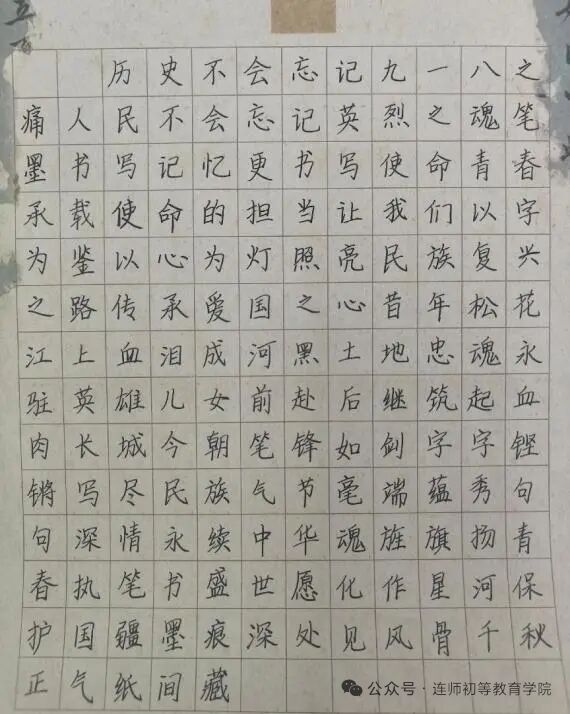 历史不会忘记九一八之
痛人民不会忘记英烈之魂笔
墨书写记忆更书写使命青春
承载使命的担当让我们以字
为鉴以心为灯照亮民族复兴
之路传承爱国之心昔年松花
江上血泪成河黑土地忠魂永
驻英雄儿女前赴后继筑起血
肉长城今朝笔锋如剑字字铿
锵写尽民族气节毫端蕴秀句
句深情永续中华魂旌旗扬青
春执笔书盛世愿化作星河保
护国疆墨痕深处见风骨千秋
正气纸间藏
公众号·连师初等教育学院